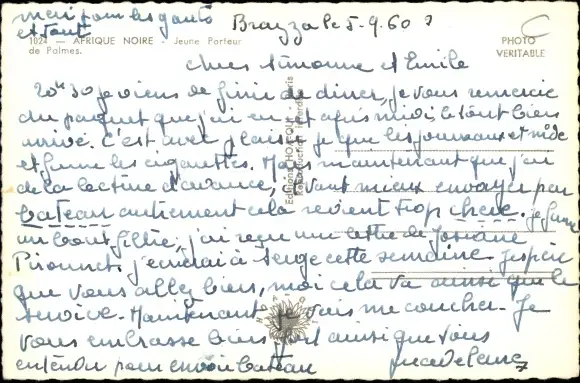 merci pour les gants
et tout
Brazza le 5-9.60
1024 — AFRIQUE NOIRE - Jeune Porteur
de Palmes.
PHOTO
VERITABLE
Editions HOA-QUI - Paris
Reproduction interdite
chers Simonne et Emile
20H30 je viens de finir de diner, je vous remercie
du paquet que j'ai eu cet après midi le tout bien
arrivé. C'est avec plaisir je que les journaux et
et fume les cigarettes. Mais maintenant que j'ai
de la lecture d'avance, vaut mieux envoyer par
bateau autrement cela revient trop chère. je fume
un bout filtre, j'ai reçu une lettre de Josiane
j'écrirai à Serge cette semaine. J'espère
que vous allez bien, moi cela va ainsi que le
service. Maintenant je vais me coucher. Je
vous embrasse bien fort ainsi que vous
entendu pour envoi bateau